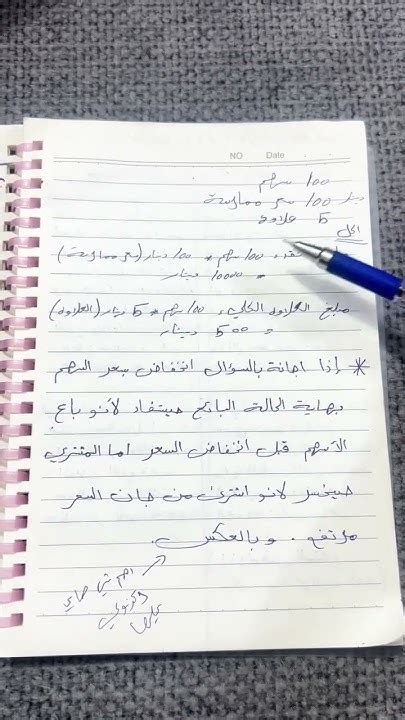 NO Date
100 سهم
100 سعر ممارسة دينار
5 علاوة
الحل
عقد = 100 سهم * 100 دينار (سعر ممارسة)
= 10000 دينار
مبلغ العلاوة الكلي = 100 سهم * 5 دينار (العلاوة)
= 500 دينار
* إذا اجانة بالسؤال انخفاض بسعر السهم
بهاية الحالة البائع حيستفاد لأنو باع
الأسهم قبل انخفاض السعر اما المشتري
حيخسر لانو اشترى من جان السعر
مرتفع . وبالعكس .
اهم شي